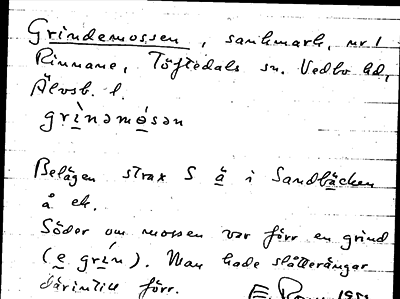 Grindemossen, sankmark, nr 1
Rinnane, Töftedals sn. Vedbo hd,
Älvsb. l.
grìnəmósən
Belägen strax S ä i Sandbäcken
å ek.
Söder om mossen var förr en grind
(e grín). Man hade slåtterängar
därintill förr. E.